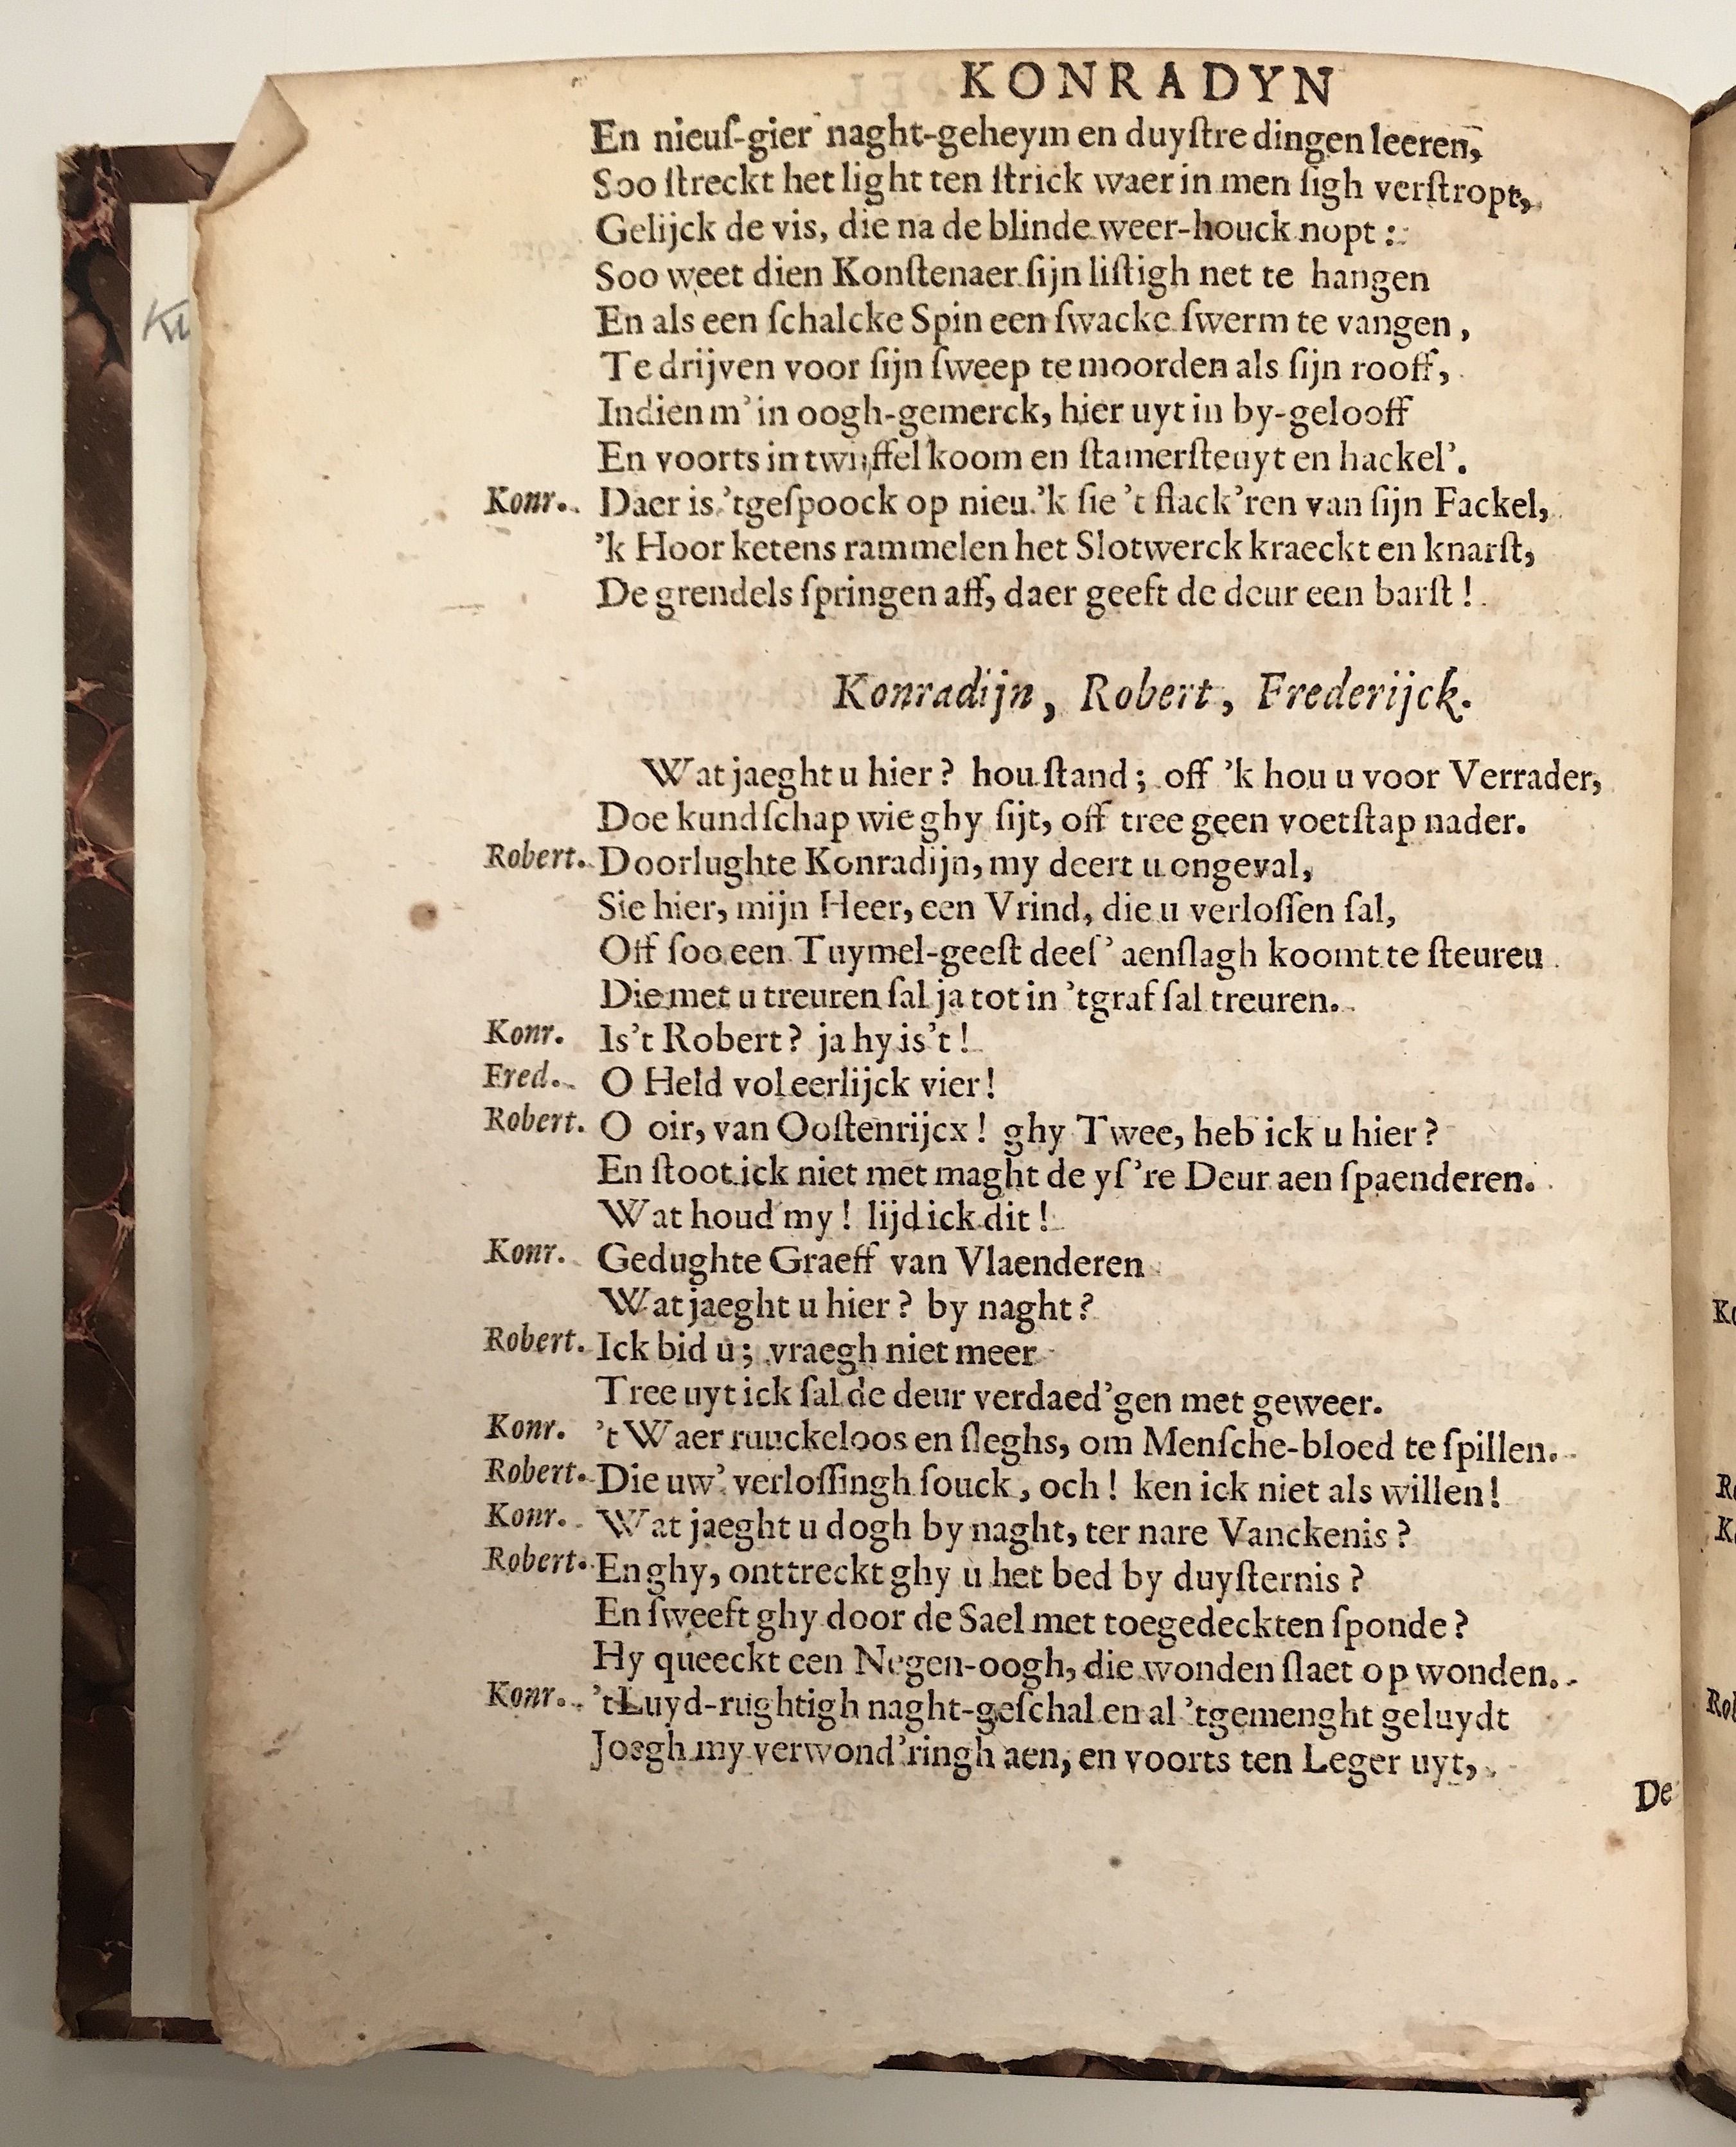 KONRADYN
En nieuſ-gier naght-geheym en duyſtre dingen leeren,
Soo ſtreckt het light ten ſtrick waer in men ſigh verſtropt,
Gelijck de vis, die na de blinde weer-houck nopt:
Soo weet dien Konſtenaer ſijn liſtigh net te hangen
En als een ſchalcke Spin een ſwacke ſwerm te vangen,
Te drijven voor ſijn ſweep te moorden als ſijn rooff,
Indien m' in oogh-gemerck, hier uyt in by-gelooff
En voorts in twijffel koom en ſtamerſteuyt en hackel'.
Konr. Daer is 'tgeſpoock op nieu. 'k ſie 't flack'ren van ſijn Fackel,
'k Hoor ketens rammelen het Slotwerck kraeckt en knarſt,
De grendels ſpringen aff, daer geeft de deur een barſt!
Konradijn, Robert, Frederijck.
Wat jaeght u hier? hou ſtand; off 'k hou u voor Verrader,
Doe kundſchap wie ghy ſijt, off tree geen voetſtap nader.
Robert. Doorlughte Konradijn, my deert u ongeval,
Sie hier, mijn Heer, een Vrind, die u verloſſen ſal,
Off ſoo een Tuymel-geeſt deeſ' aenſlagh koomt te ſteuren
Die met u treuren ſal ja tot in 'tgraf ſal treuren.
Konr. Is't Robert? ja hy is't!
Fred. O Held vol eerlijck vier!
Robert. O oir, van Ooſtenrijcx! ghy Twee, heb ick u hier?
En ſtoot ick niet met maght de yſ're Deur aen ſpaenderen.
Wat houd my! lijd ick dit!
Konr. Gedughte Graeff van Vlaenderen
Wat jaeght u hier? by naght?
Robert. Ick bid u; vraegh niet meer
Tree uyt ick ſal de deur verdaed'gen met geweer.
Konr. 't Waer ruuckeloos en ſleghs, om Menſche-bloed te ſpillen.
Robert. Die uw' verloſſingh ſouck, och! ken ick niet als willen!
Konr. Wat jaeght u dogh by naght, ter nare Vanckenis?
Robert. En ghy, onttreckt ghy u het bed by duyſternis?
En ſweeft ghy door de Sael met toegedeckten ſponde?
Hy queeckt een Negen-oogh, die wonden ſlaet op wonden.
Konr. 't Luyd-rughtigh naght-geſchal en al 'tgemenght geluydt
Joegh my verwond'ringh aen, en voorts ten Leger uyt,
De